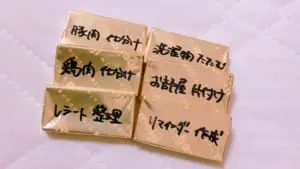 豚肉 仕分け
洗濯物たたむ
鶏肉 仕分け
お部屋 片付け
レシート 整理
リマインダー 作成